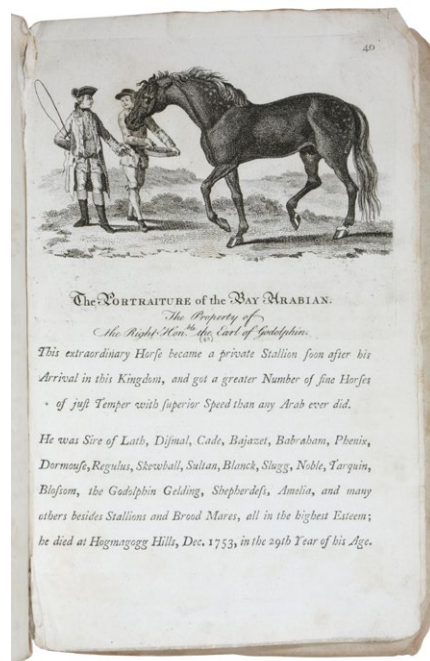 40
The PORTRAITURE of the BAY ARABIAN.
The Property of
the Right Hon.ble the Earl of Godolphin.
(40)
This extraordinary Horse became a private Stallion soon after his
Arrival in this Kingdom, and got a greater Number of fine Horses
of juſt Temper with ſuperior Speed than any Arab ever did.
He was Sire of Lath, Diſmal, Cade, Bajazet, Babraham, Phenix,
Dormouſe, Regulus, Skewball, Sultan, Blanck, Slugg, Noble, Tarquin,
Bloſſom, the Godolphin Gelding, Shepherdeſs, Amelia, and many
others beſides Stallions and Brood Mares, all in the higheſt Eſteem;
he died at Hogmagogg Hills, Dec. 1753, in the 29th Year of his Age.